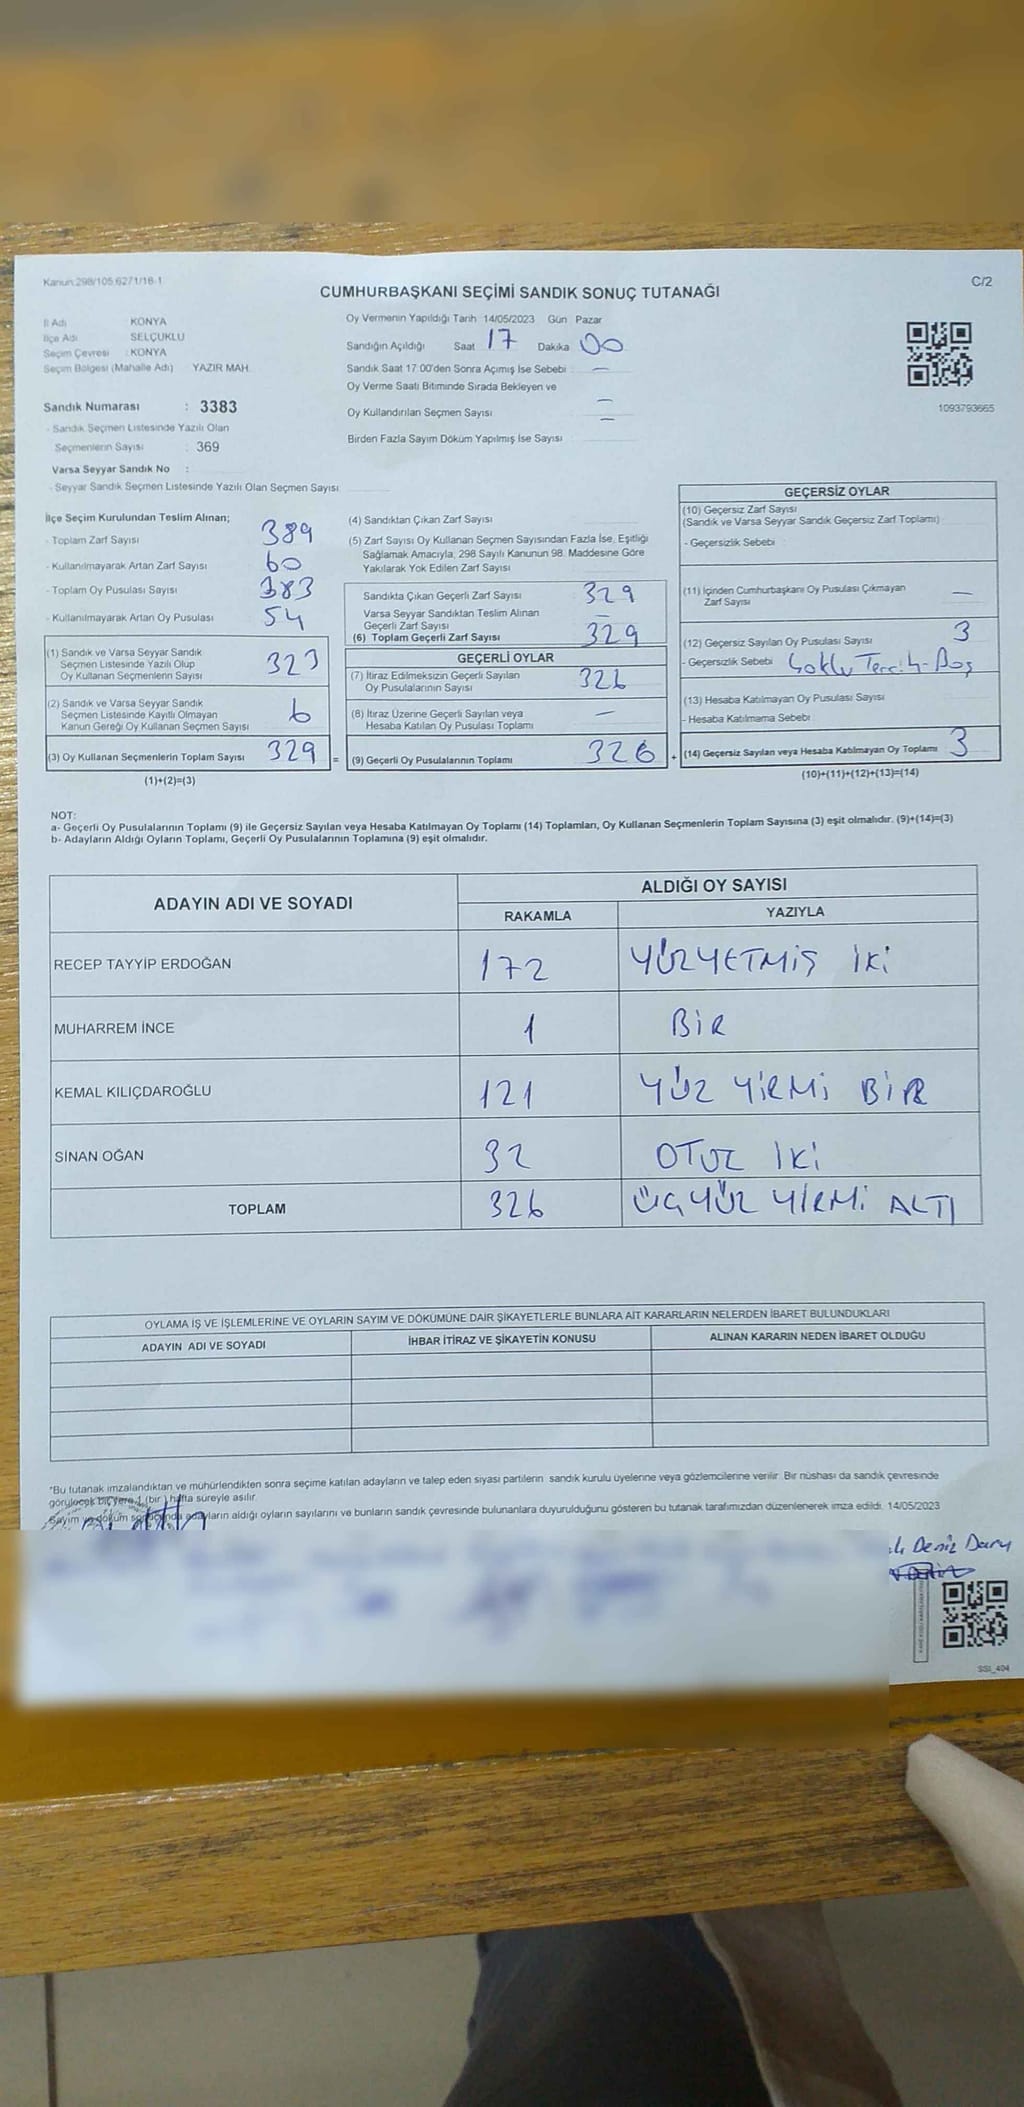 Kanun:298/105,6271/16-1
C/2
CUMHURBAŞKANI SEÇİMİ SANDIK SONUÇ TUTANAĞI
İl Adı KONYA
İlçe Adı SELÇUKLU
Seçim Çevresi : KONYA
Seçim Bölgesi (Mahalle Adı) YAZIR MAH.
Sandık Numarası : 3383
- Sandık Seçmen Listesinde Yazılı Olan
Seçmenlerin Sayısı : 369
Varsa Seyyar Sandık No :
- Seyyar Sandık Seçmen Listesinde Yazılı Olan Seçmen Sayısı
Oy Vermenin Yapıldığı Tarih 14/05/2023 Gün Pazar
Sandığın Açıldığı Saat 17 Dakika 00
Sandık Saat 17:00'den Sonra Açımış İse Sebebi : —
Oy Verme Saati Bitiminde Sırada Bekleyen ve
Oy Kullandırılan Seçmen Sayısı —
Birden Fazla Sayım Döküm Yapılmış İse Sayısı —
1093793665
İlçe Seçim Kurulundan Teslim Alınan;
- Toplam Zarf Sayısı 389
- Kullanılmayarak Artan Zarf Sayısı 60
- Toplam Oy Pusulası Sayısı 383
- Kullanılmayarak Artan Oy Pusulası 54
(1) Sandık ve Varsa Seyyar Sandık
Seçmen Listesinde Yazılı Olup
Oy Kullanan Seçmenlerin Sayısı 323
(2) Sandık ve Varsa Seyyar Sandık
Seçmen Listesinde Kayıtlı Olmayan
Kanun Gereği Oy Kullanan Seçmen Sayısı 6
(3) Oy Kullanan Seçmenlerin Toplam Sayısı 329 =
(1)+(2)=(3)
(4) Sandıktan Çıkan Zarf Sayısı
(5) Zarf Sayısı Oy Kullanan Seçmen Sayısından Fazla İse, Eşitliği
Sağlamak Amacıyla; 298 Sayılı Kanunun 98. Maddesine Göre
Yakılarak Yok Edilen Zarf Sayısı
Sandıkta Çıkan Geçerli Zarf Sayısı 329
Varsa Seyyar Sandıktan Teslim Alınan
Geçerli Zarf Sayısı —
(6) Toplam Geçerli Zarf Sayısı 329
GEÇERLİ OYLAR
(7) İtiraz Edilmeksizin Geçerli Sayılan
Oy Pusulalarının Sayısı 326
(8) İtiraz Üzerine Geçerli Sayılan veya
Hesaba Katılan Oy Pusulası Toplamı —
(9) Geçerli Oy Pusulalarının Toplamı 326 +
GEÇERSİZ OYLAR
(10) Geçersiz Zarf Sayısı
(Sandık ve Varsa Seyyar Sandık Geçersiz Zarf Toplamı)
- Geçersizlik Sebebi :
(11) İçinden Cumhurbaşkanı Oy Pusulası Çıkmayan
Zarf Sayısı —
(12) Geçersiz Sayılan Oy Pusulası Sayısı 3
- Geçersizlik Sebebi Çoklu Tercih-Boş
(13) Hesaba Katılmayan Oy Pusulası Sayısı
- Hesaba Katılmama Sebebi
(14) Geçersiz Sayılan veya Hesaba Katılmayan Oy Toplamı 3
(10)+(11)+(12)+(13)=(14)
NOT:
a- Geçerli Oy Pusulalarının Toplamı (9) ile Geçersiz Sayılan veya Hesaba Katılmayan Oy Toplamı (14) Toplamları, Oy Kullanan Seçmenlerin Toplam Sayısına (3) eşit olmalıdır. (9)+(14)=(3)
b- Adayların Aldığı Oyların Toplamı, Geçerli Oy Pusulalarının Toplamına (9) eşit olmalıdır.
ADAYIN ADI VE SOYADI ALDIĞI OY SAYISI
RAKAMLA YAZIYLA
RECEP TAYYİP ERDOĞAN 172 YÜZYETMİŞ İKİ
MUHARREM İNCE 1 BİR
KEMAL KILIÇDAROĞLU 121 YÜZ YİRMİ BİR
SİNAN OĞAN 32 OTUZ İKİ
TOPLAM 326 ÜÇYÜZ YİRMİ ALTI
OYLAMA İŞ VE İŞLEMLERİNE VE OYLARIN SAYIM VE DÖKÜMÜNE DAİR ŞİKAYETLERLE BUNLARA AİT KARARLARIN NELERDEN İBARET BULUNDUKLARI
ADAYIN ADI VE SOYADI İHBAR İTİRAZ VE ŞİKAYETİN KONUSU ALINAN KARARIN NEDEN İBARET OLDUĞU
"Bu tutanak imzalandıktan ve mühürlendikten sonra seçime katılan adayların ve talep eden siyasi partilerin sandık kurulu üyelerine veya gözlemcilerine verilir. Bir nüshası da sandık çevresinde
görülecek bir yere 1 (bir) hafta süreyle asılır.
Sayım ve döküm sonucunda adayların aldığı oyların sayılarını ve bunların sandık çevresinde bulunanlara duyurulduğunu gösteren bu tutanak tarafımızdan düzenlenerek imza edildi. 14/05/2023
Deniz
SSI_404